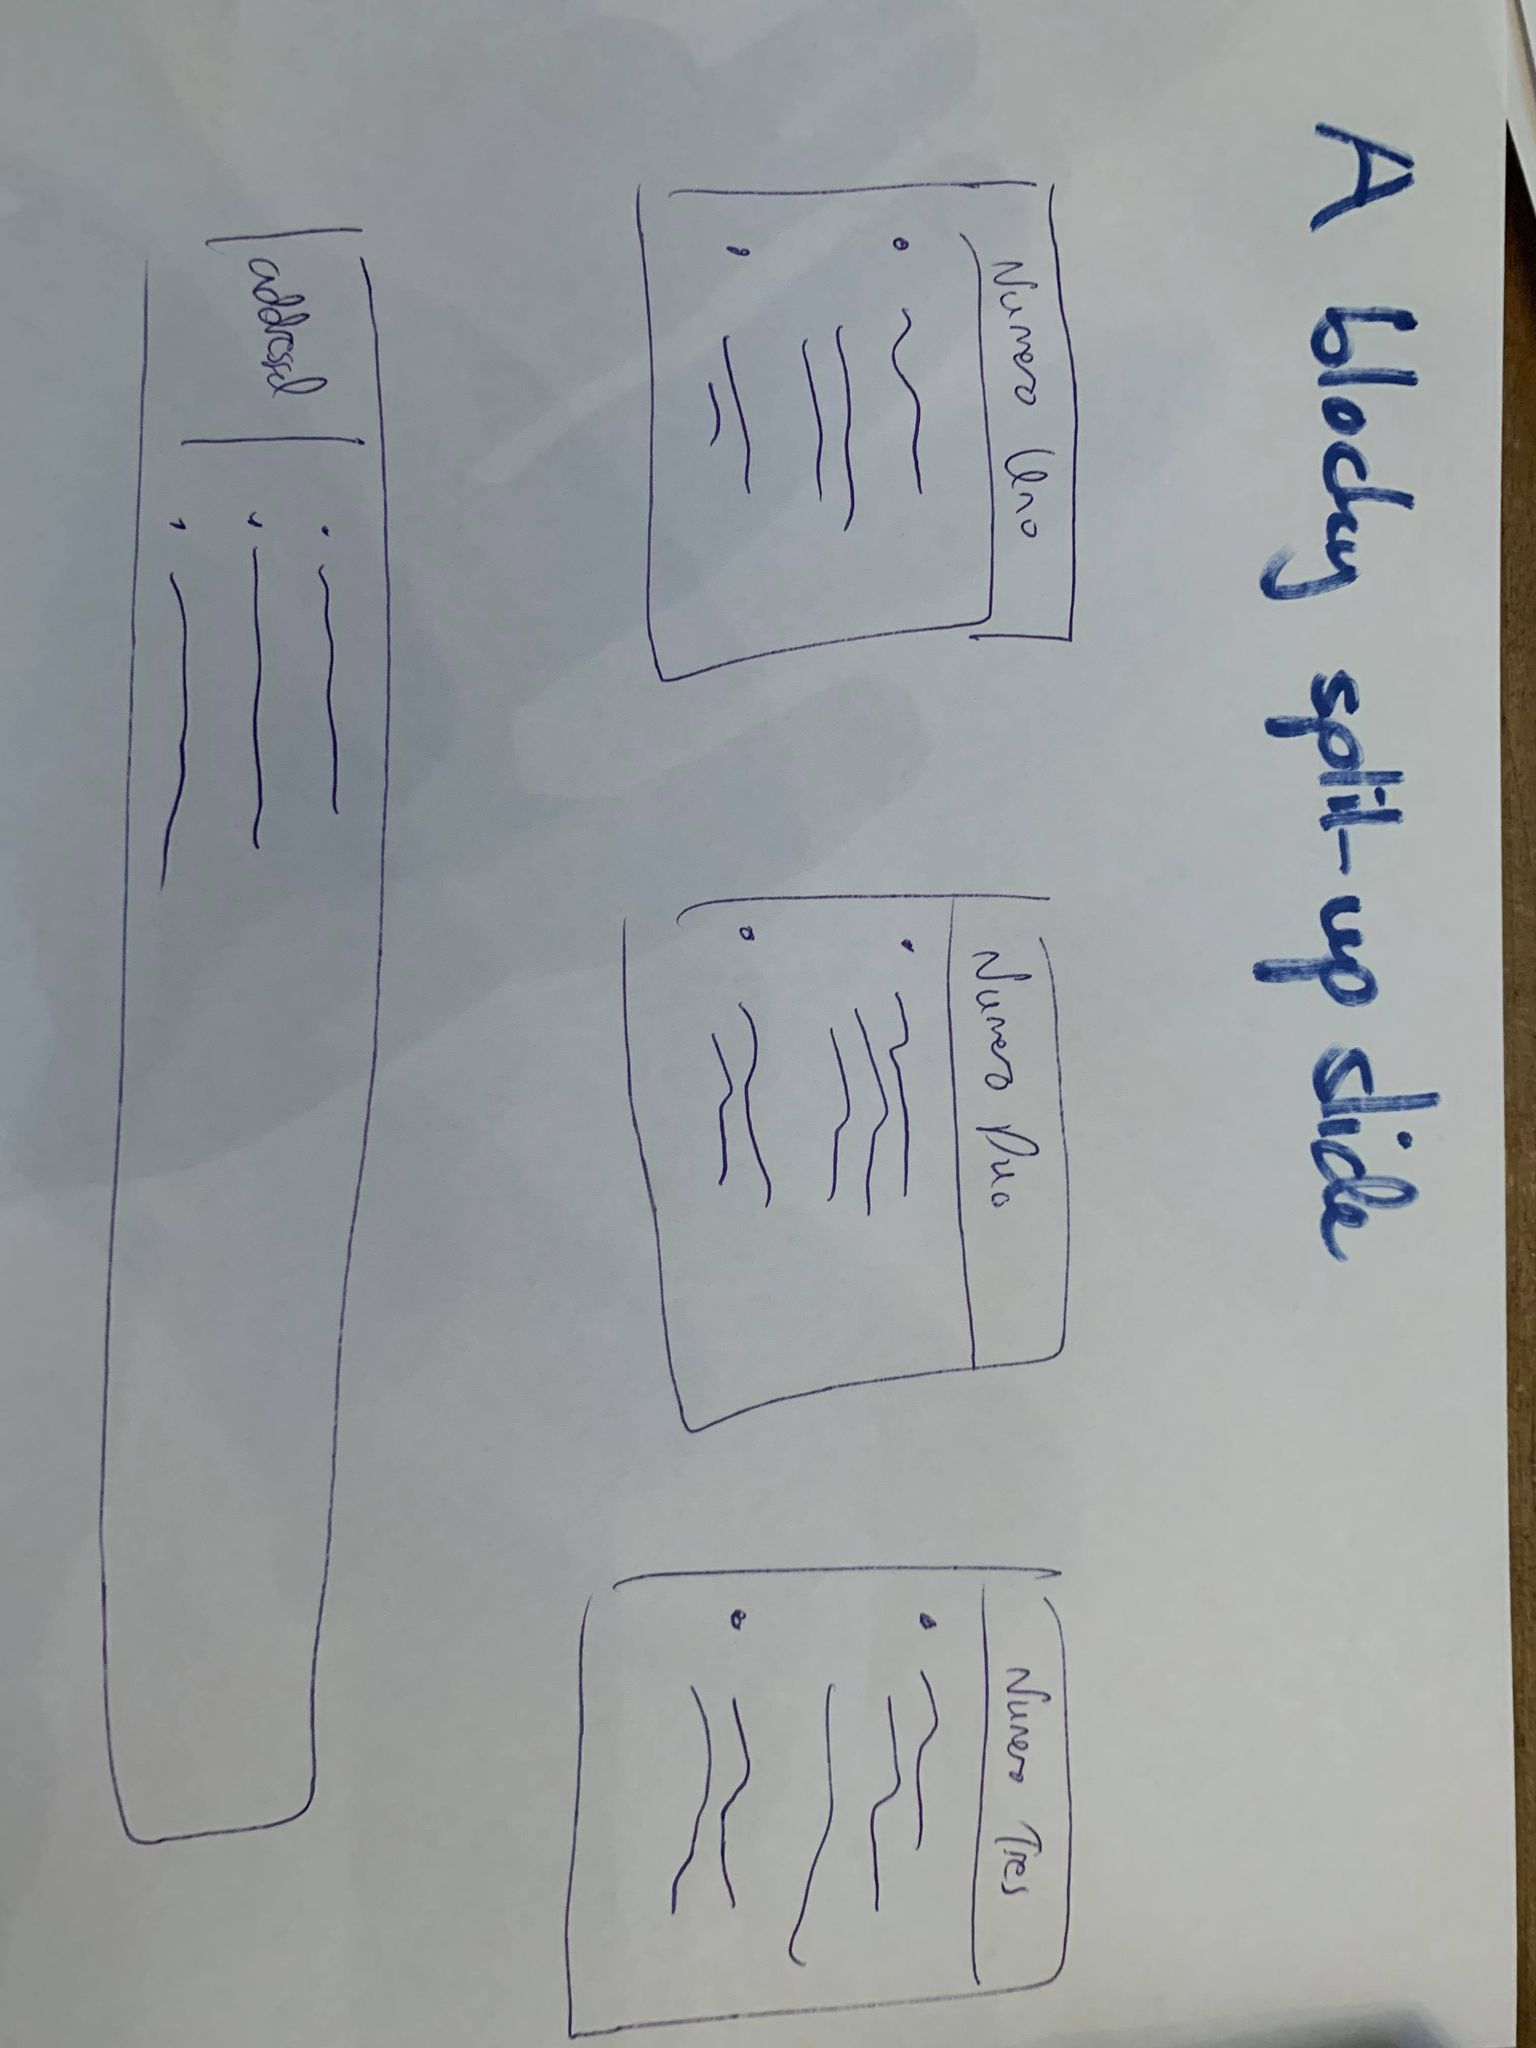 A blocky split-up slide
Numero Uno
Numero Duo
Numero Tres
addressed